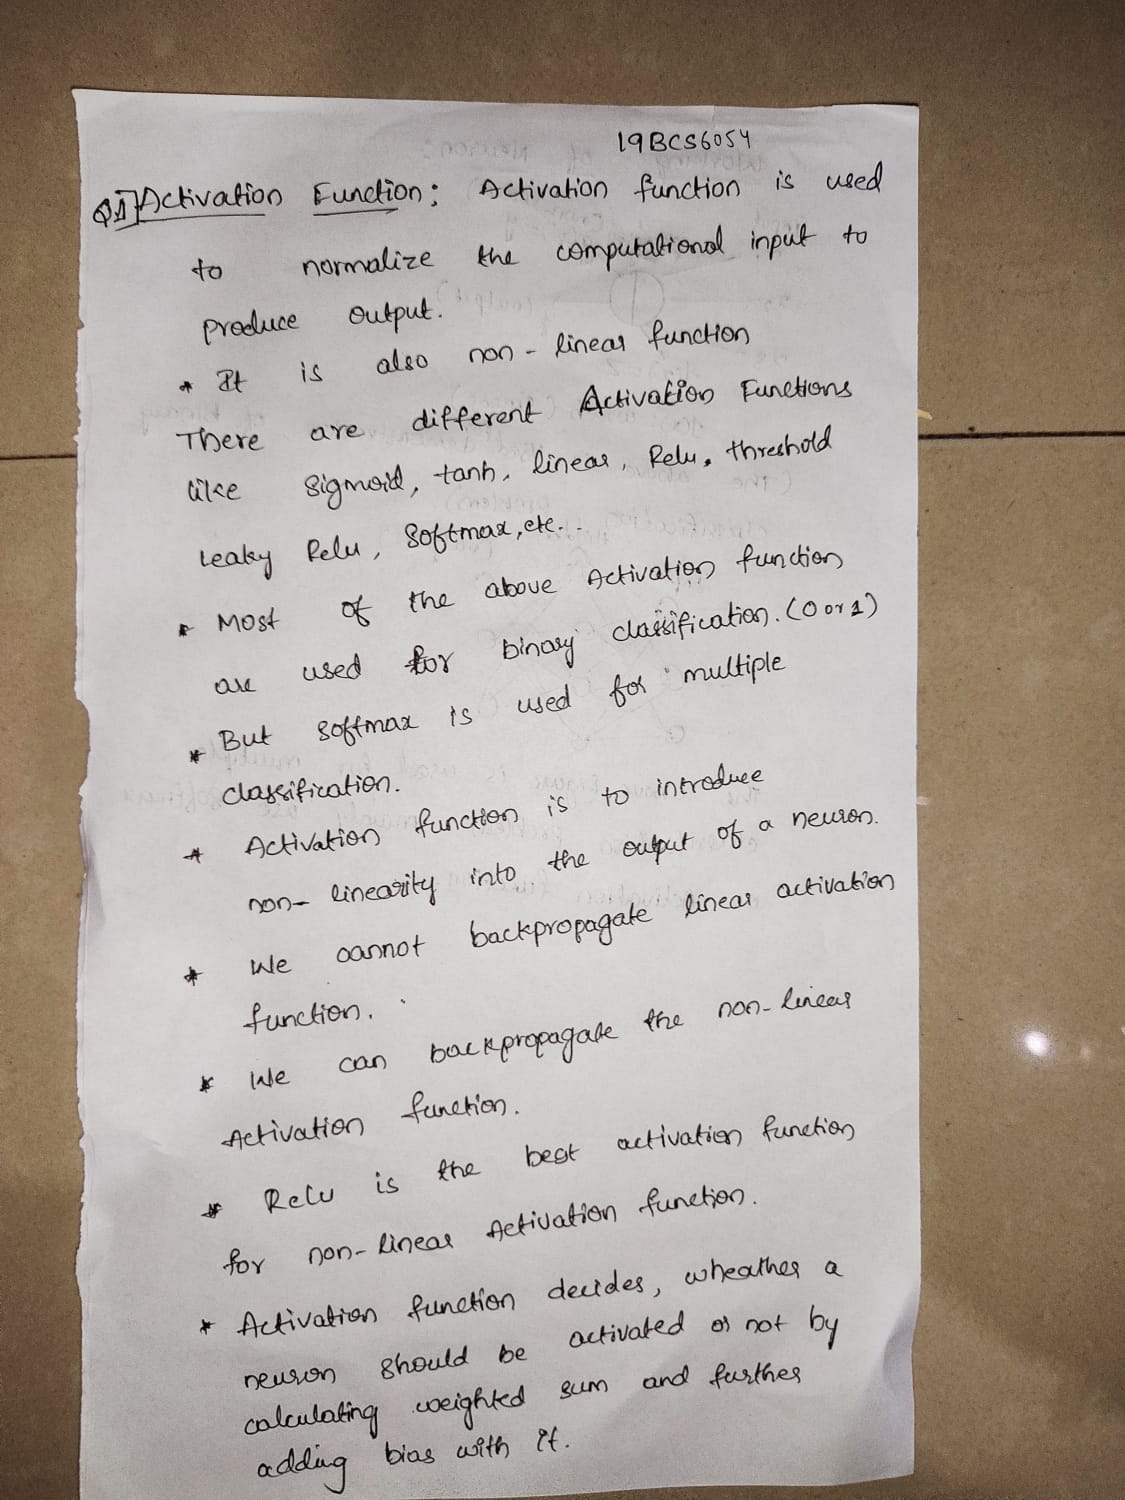 19BCS6054
Q1] Activation Function: Activation function is used
to normalize the computational input to
produce output.
* It is also non-linear function
There are different Activation Functions
like Sigmoid, tanh, linear, Relu, threshold
Leaky Relu, Softmax, etc..
* Most of the above Activation function
are used for binary classification. (0 or 1)
* But Softmax is used for multiple
classification.
* Activation function is to introduce
non-linearity into the output of a neuron.
* We cannot backpropagate linear activation
function.
* We can backpropagate the non-linear
Activation function.
* Relu is the best activation function
for non-linear Activation function.
* Activation function decides, wheather a
neuron should be activated or not by
calculating weighted sum and further
adding bias with it.